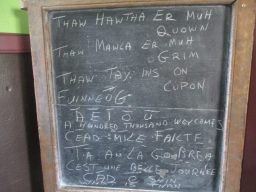 THAW HAWTHA ER MUH
QUOWN
THAW MAWLA ER MUH
GRIM
THAW TAY, INS ON
CUPON
FUINNEOG
A E I O U
A HUNDRED THOUSAND WELCOMES
CEAD MILE FAILTE
TA AN LA GO BREA
C'EST UNE BELLE JOURNEE